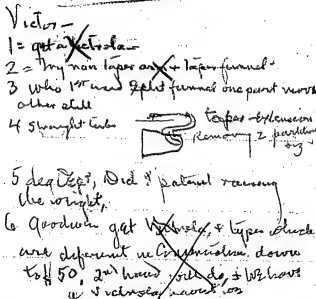 Victor—
1 = get a Victrola—
2 = Try non taper arm + taper funnel—
3 Who 1st used Split funnel one part moves
other still
4 Straight tube
taper extension
Removing 2 partition
5 Did patent raising
the weight,
6 Goodwin get Victrola, + types which
are different in Construction down
to $50, 2nd hand will do, We have
a Victrola